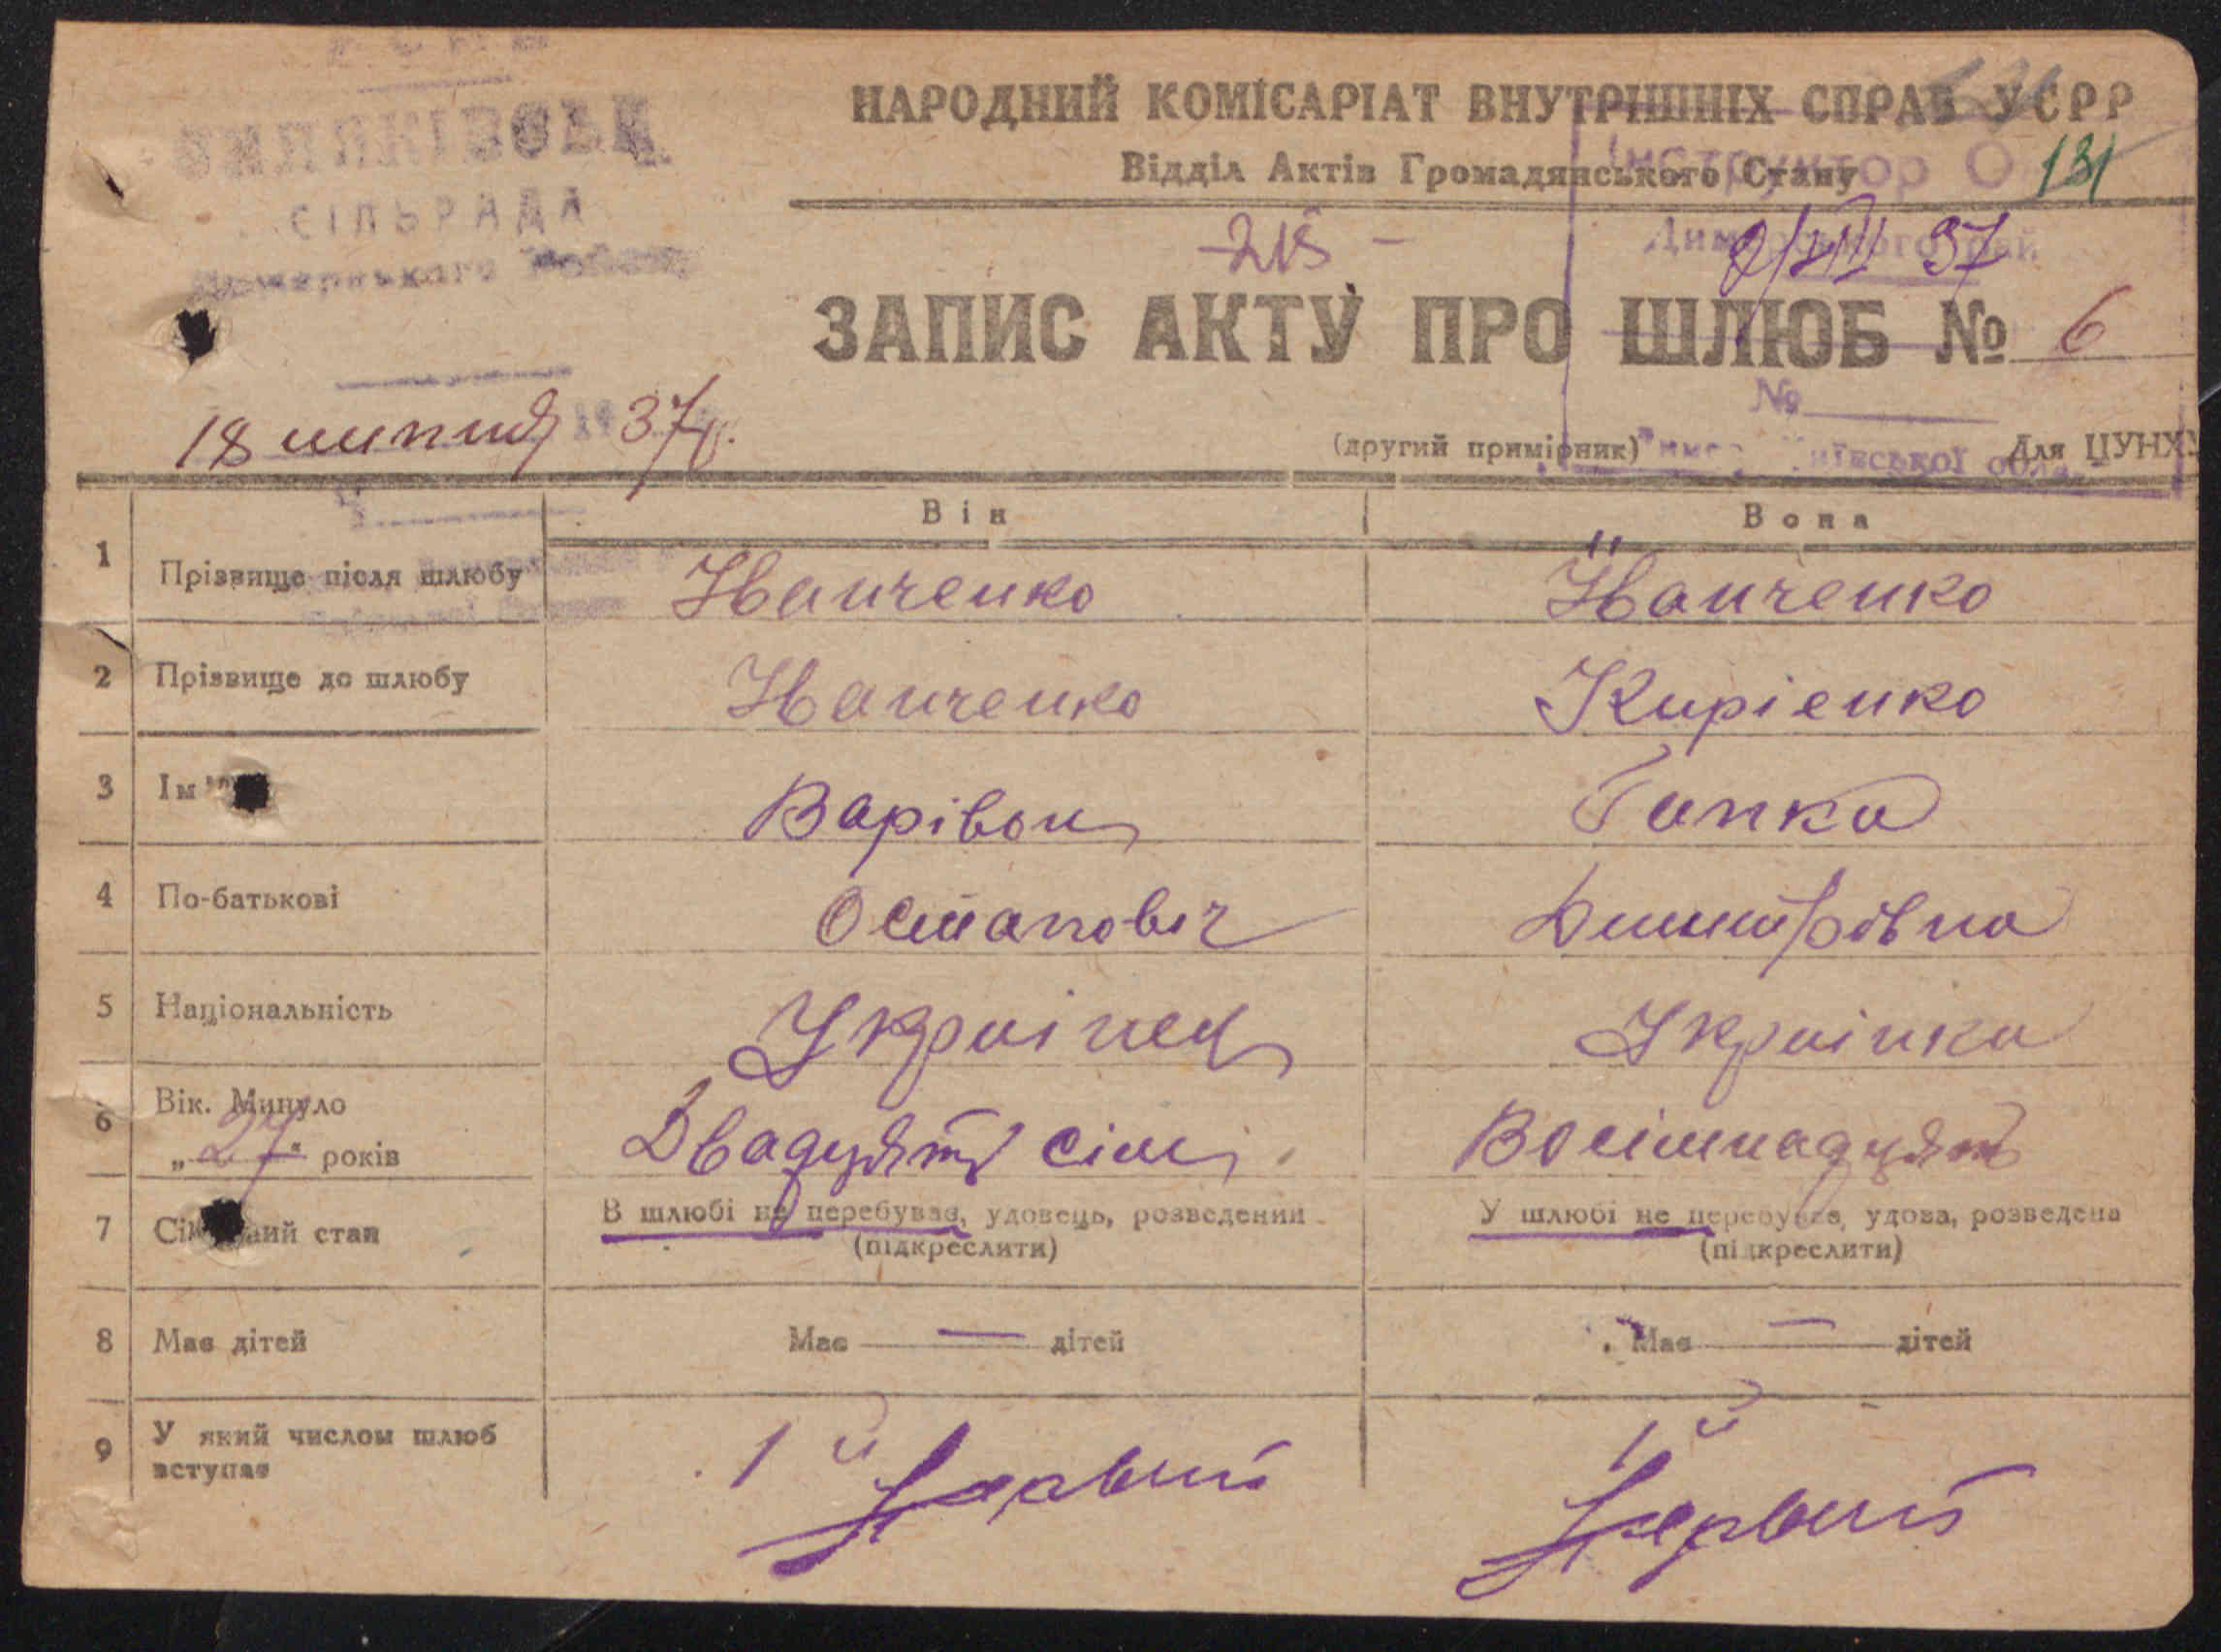 СІЛЬРАДА
НАРОДНИЙ КОМІСАРІАТ ВНУТРІШНІХ СПРАВ УСРР
Відділ Актів Громадянського Стану
Інструктор О
131
-218-
Димерського рай
9/VIII 37
ЗАПИС АКТУ ПРО ШЛЮБ № 6
№
18 липня 1937р.
(другий примірник)
Київської обл.
Для ЦУНХУ
Він
Вона
1 Прізвище після шлюбу Іванченко Іванченко
2 Прізвище до шлюбу Іванченко Кирієнко
3 Ім'я Варівон Гапка
4 По-батькові Остапович Дмитрівна
5 Національність Українец Українка
6 Вік. Минуло
„27" років Двадцять сім Восімнадцять
7 Сімейний стан В шлюбі не перебував, удовець, розведений У шлюбі не перебувала, удова, розведена
(підкреслити) (підкреслити)
8 Має дітей Має — дітей Має — дітей
9 У який числом шлюб
вступає
1й 1й
Первий Первий